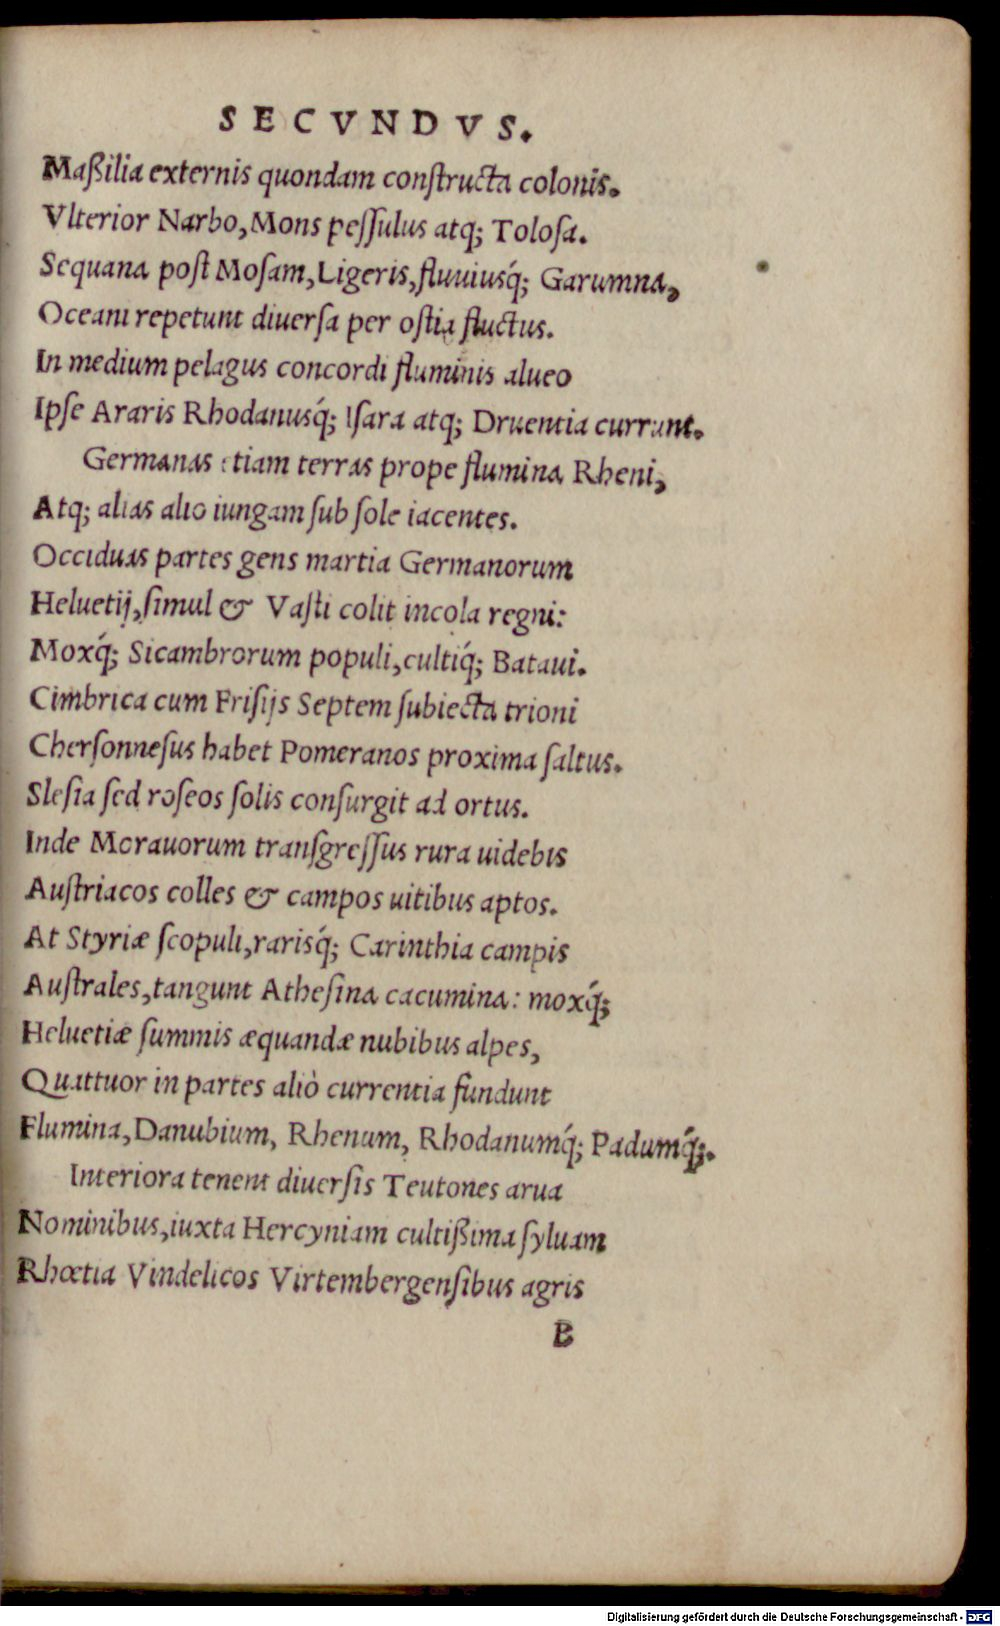 SECVNDVS.
Maßilia externis quondam constructa colonis.
Vlterior Narbo, Mons pesſulus atq; Toloſa.
Sequana poſt Moſam, Ligeris, fluuiusq́; Garumna,
Oceani repetunt diuerſa per oſtia fluctus.
In medium pelagus concordi fluminis alueo
Ipſe Araris Rhodanusq́; Iſara atq; Druentia currunt.
Germanas etiam terras prope flumina Rheni,
Atq; alias alio iungam ſub ſole iacentes.
Occiduas partes gens martia Germanorum
Heluetij, ſimul & Vaſti colit incola regni:
Moxq́; Sicambrorum populi, cultiq́; Bataui.
Cimbrica cum Friſijs Septem ſubiecta trioni
Cherſonneſus habet Pomeranos proxima ſaltus.
Sleſia ſed roſeos ſolis conſurgit ad ortus.
Inde Morauorum tranſgreſſus rura uidebis
Auſtriacos colles & campos uitibus aptos.
At Styriæ ſcopuli, rarisq́; Carinthia campis
Auſtrales, tangunt Atheſina cacumina: moxq́;
Heluetiæ ſummis æquandæ nubibus alpes,
Quattuor in partes aliò currentia fundunt
Flumina, Danubium, Rhenum, Rhodanumq́; Padumq́;.
Interiora tenent diuerſis Teutones arua
Nominibus, iuxta Hercyniam cultißima ſyluam
Rhœtia Vindelicos Virtembergenſibus agris
B
Digitalisierung gefördert durch die Deutsche Forschungsgemeinschaft - DFG